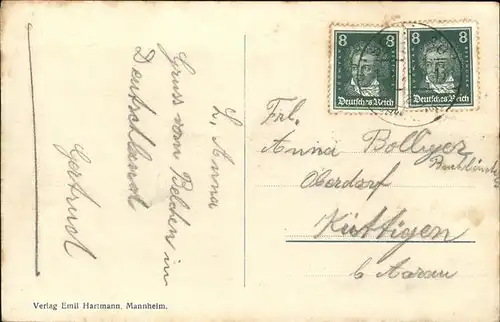 L. Anna
Gruss vom Belchen in
Deutschland
Gertrud
8
Deutsches Reich
8
Deutsches Reich
Frl.
Anna Bolliger
Oberdorf
Küttigen
b Aarau
Verlag Emil Hartmann, Mannheim.